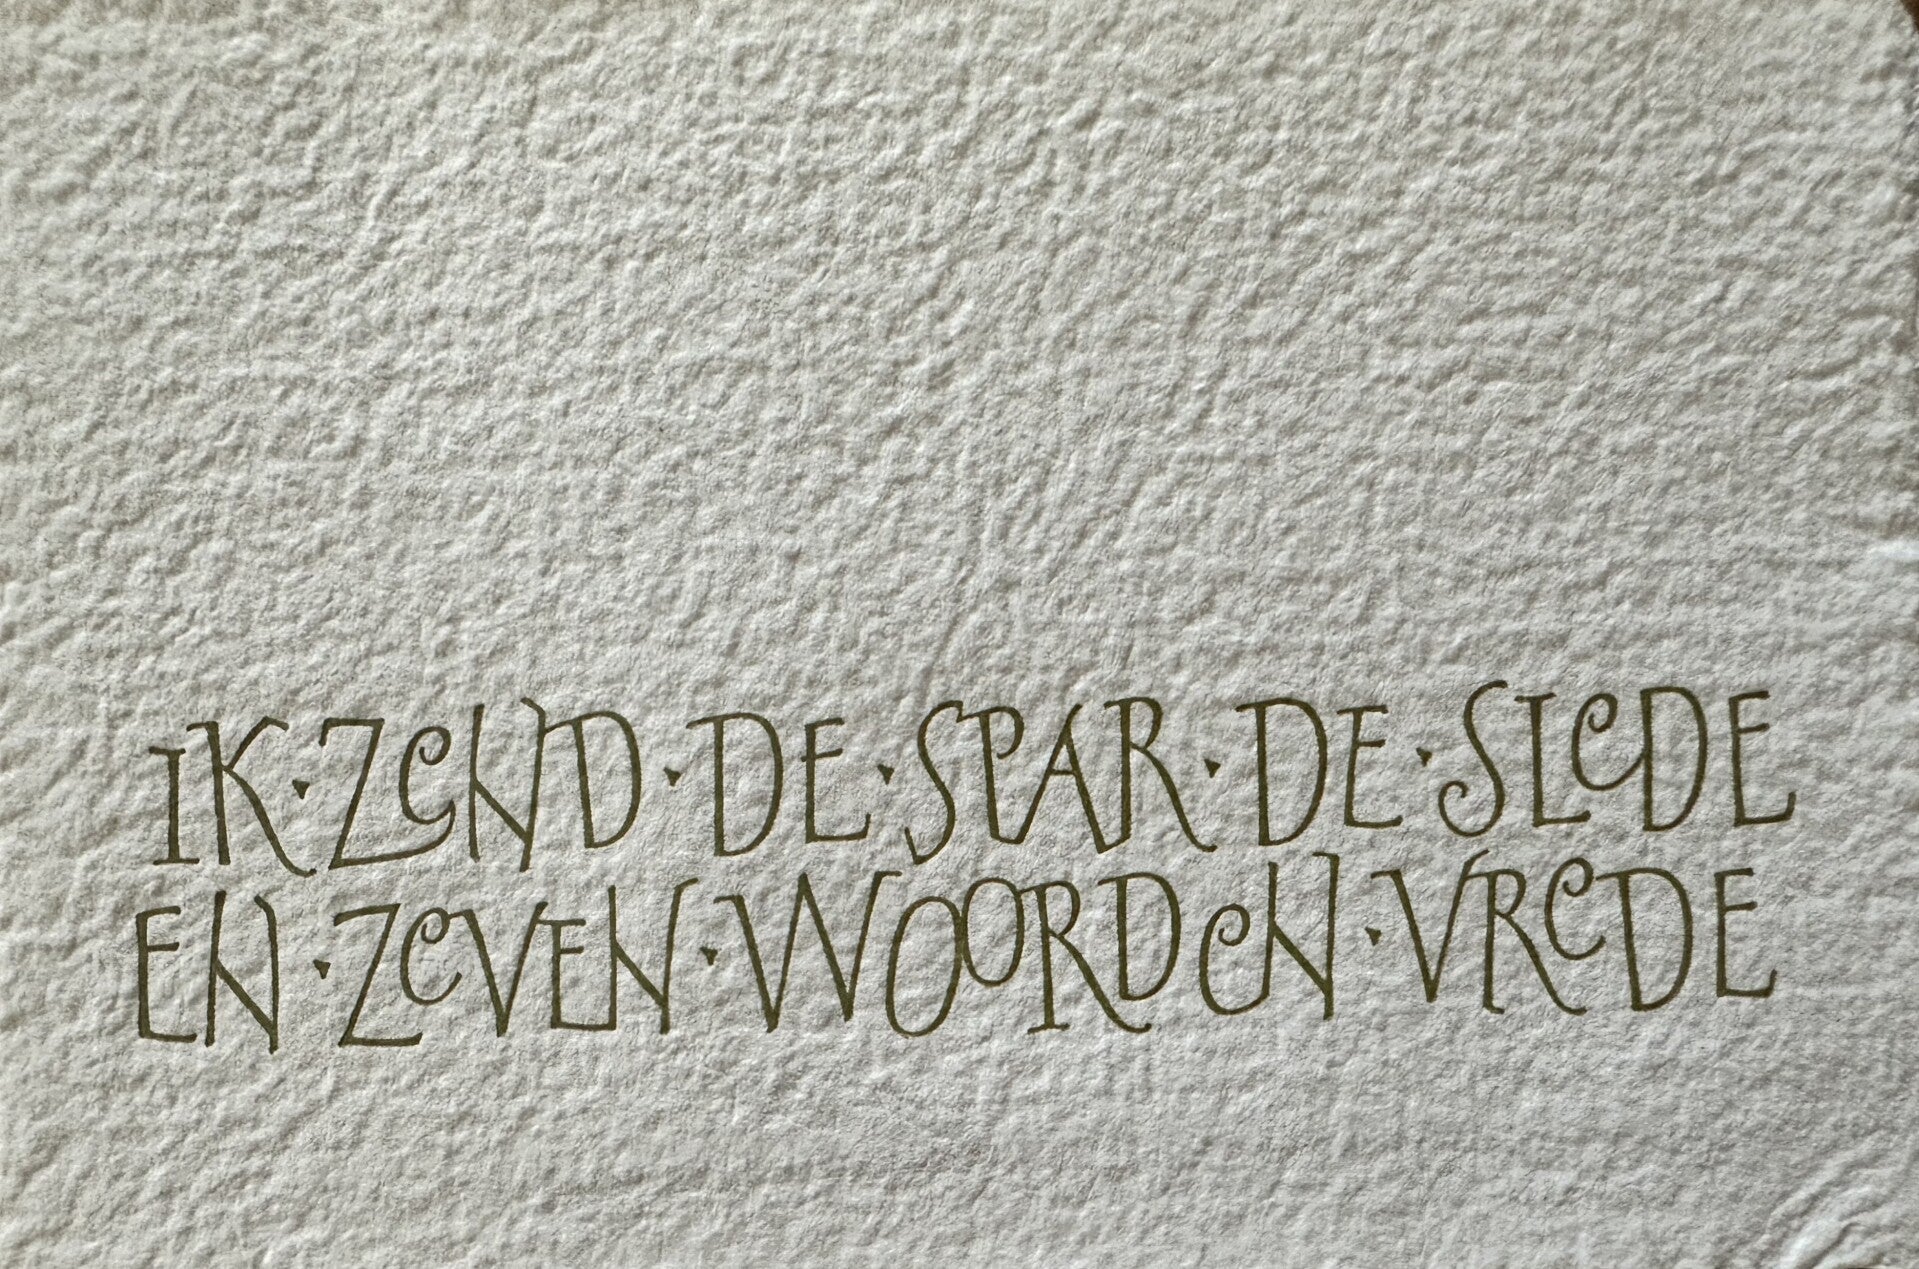 IK · ZEND · DE · SPAR · DE · SLEDE
EN · ZEVEN · WOORDEN · VREDE